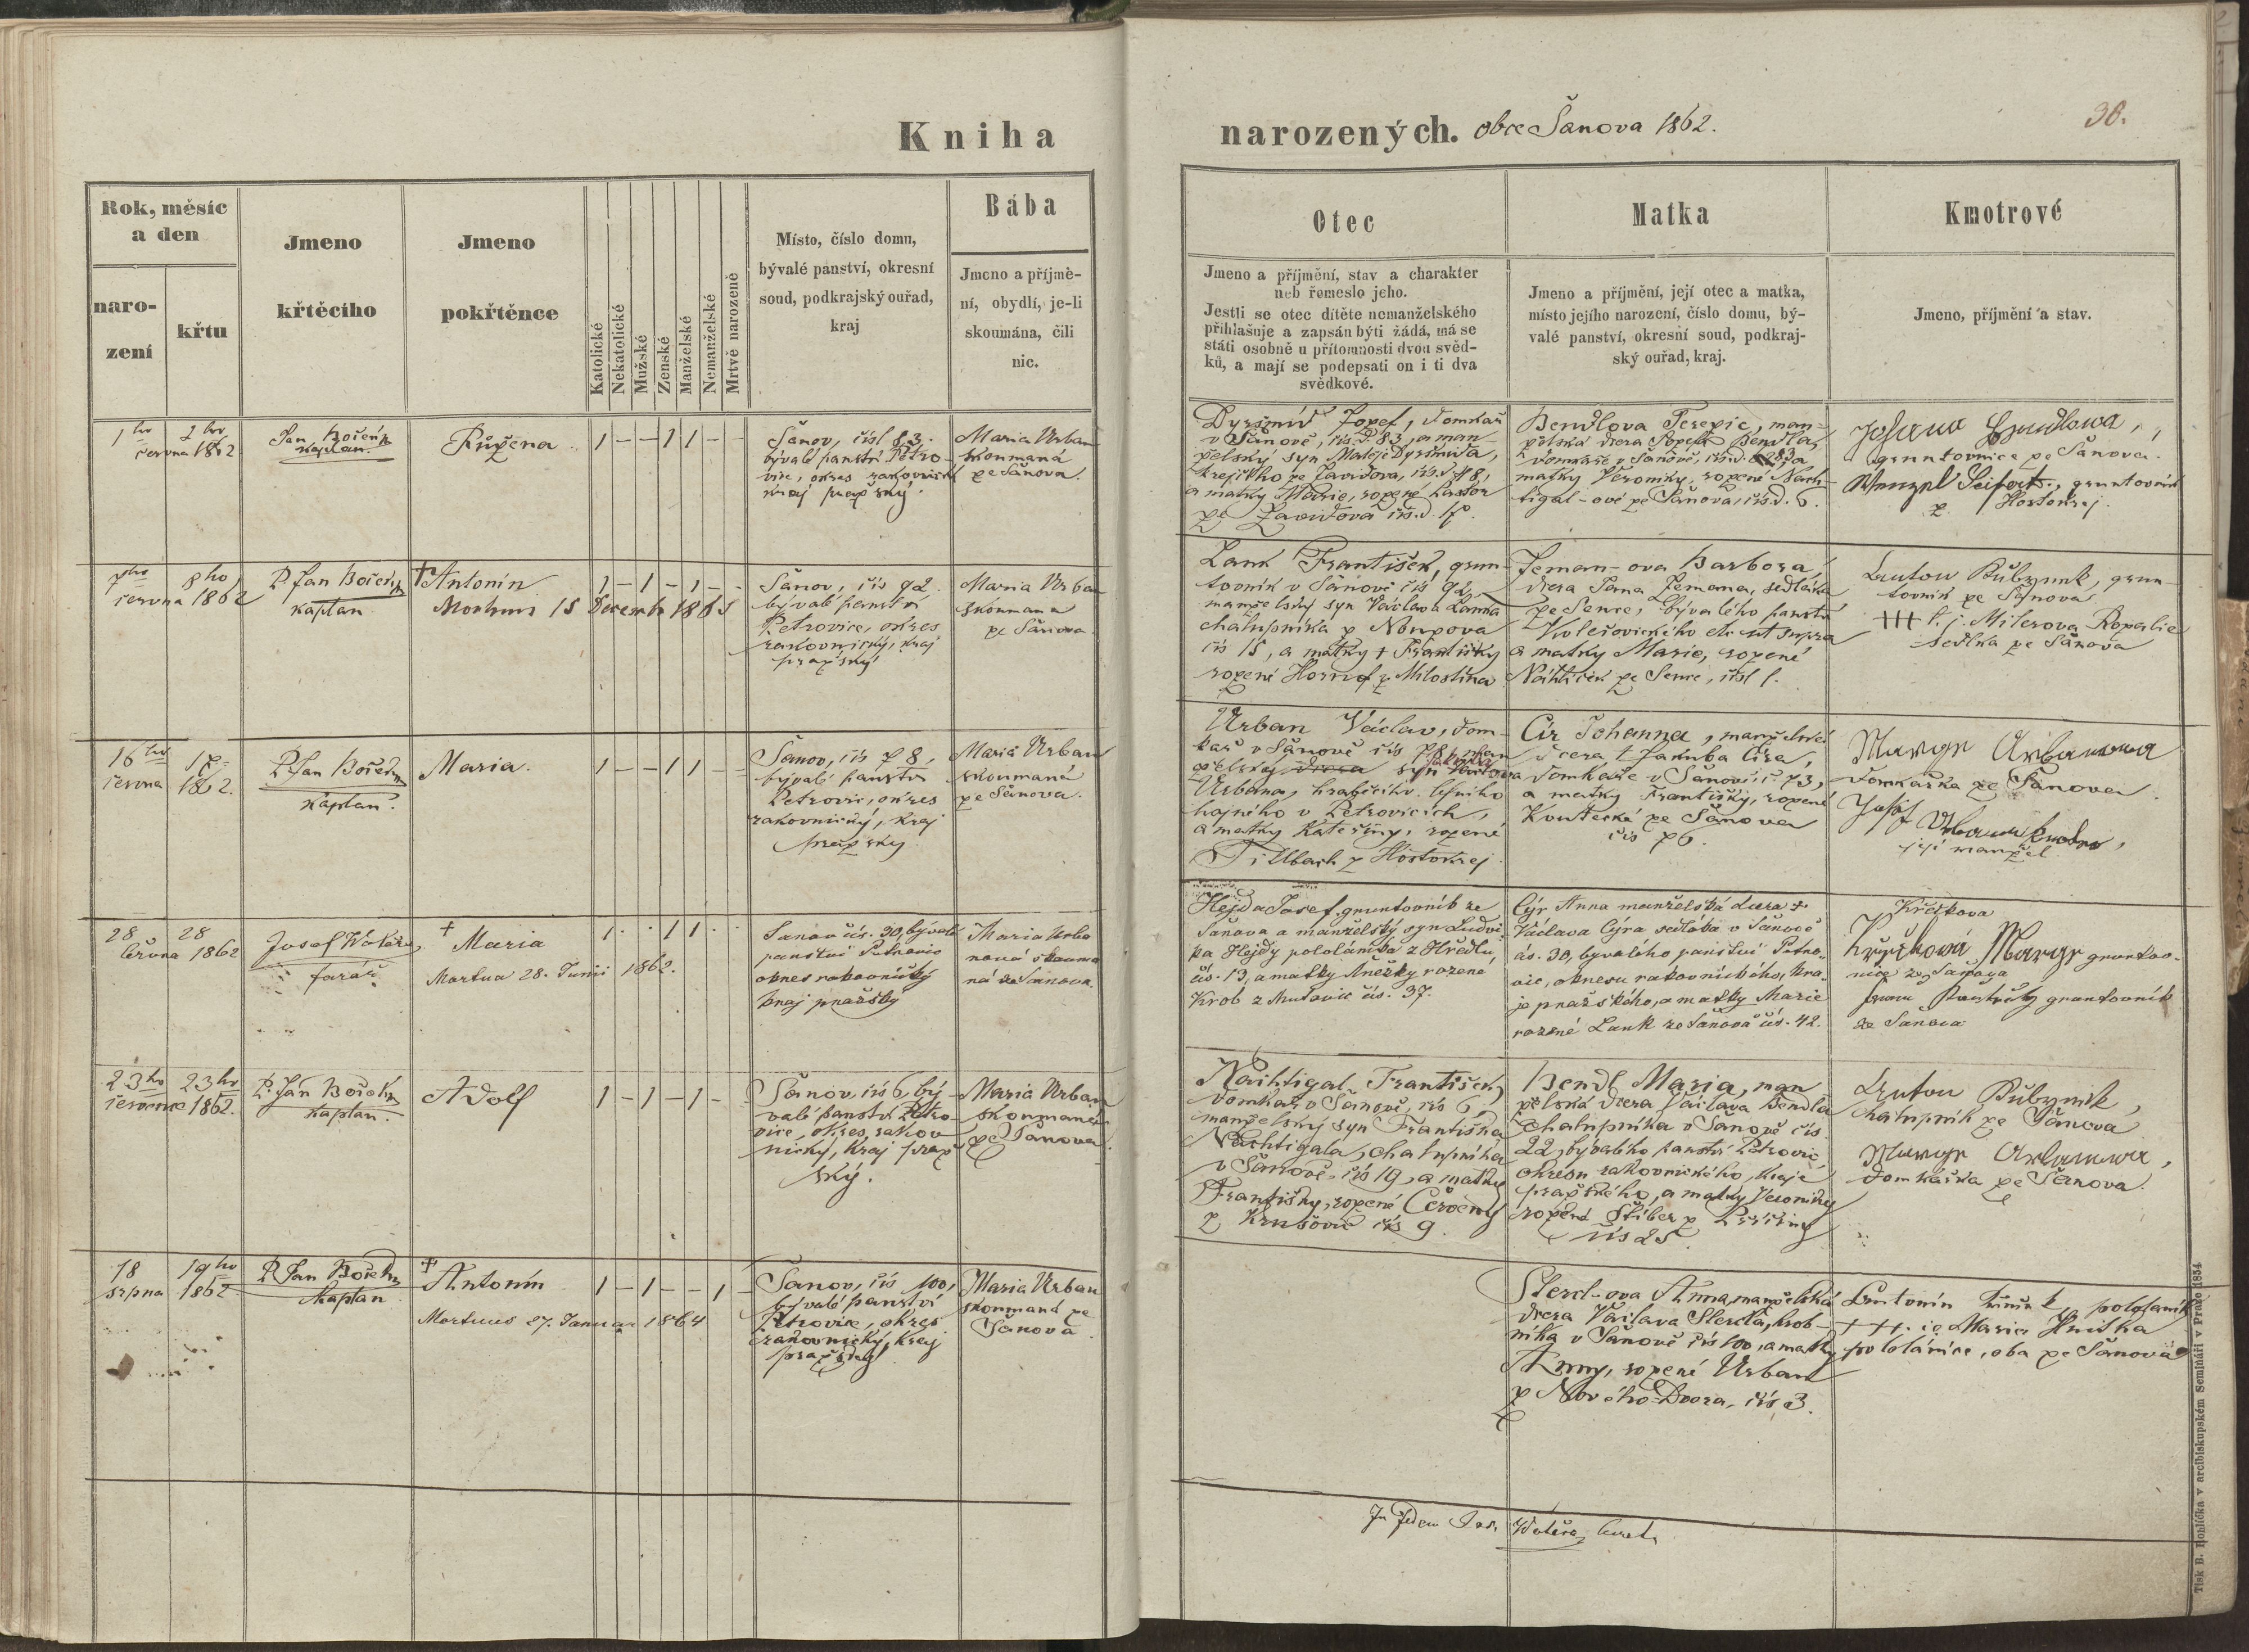 Kniha
narozených. obce Šanova 1862.
30.
Rok, měsíc
a den
naro-
zení
křtu
Jmeno
křtěcího
Jmeno
pokřtěnce
Katolické
Nekatolické
Mužské
Ženské
Manželské
Nemanželské
Mrtvě narozené
Místo, číslo domu,
bývalé panství, okresní
soud, podkrajský ouřad,
kraj
Bába
Jmeno a příjmě-
ní, obydlí, je-li
skoumána, čili
nic.
Otec
Jmeno a příjmění, stav a charakter
neb řemeslo jeho.
Jestli se otec dítěte nemanželského
přihlašuje a zapsán býti žádá, má se
státi osobně u přítomnosti dvou svěd-
ků, a mají se podepsati on i ti dva
svědkové.
Matka
Jmeno a příjmění, její otec a matka,
místo jejího narození, číslo domu, bý-
valé panství, okresní soud, podkraj-
ský ouřad, kraj.
Kmotrové
Jmeno, příjmění a stav.
1ho 2ho
června 1862
Jan Bořek
kaplan.
Růžena
1 – – 1 1 – –
Šanov, čísl 83.
bývalé panství Petro-
vice, okres rakovnický
kraj pražský.
Maria Urban
skoumaná
ze Šanova.
Dyršmíd Jozef, domkař
v Šanově, čís. d. 83, a man-
želský syn Matěje Dyršmída,
krejčího ze Zavidova, čís. d. 48,
a matky Marie, rozené Kastor
ze Zavidova čís. d.
Bendlova Terezie, man-
želská dcera Jozefa Bendla,
domkaře v Šanově, čís. d. 83, a
matky Veroniky, rozené Nach-
tigal-ové ze Šanova, čís. d. 6.
gruntovnice ze Šanova.
Wenzel Seifert, gruntovník
z Hostokrej.
7ho 8ho
června 1862
P. Jan Bořek
kaplan
† Antonín
Mortuus 15 Decemb 1865
1 – 1 – 1 – –
Šanov, čís 92.
bývalé panství
Petrovice, okres
rakovnický, kraj
pražský
Maria Urban
skoumana
ze Šanova.
Lank František, grun-
tovník v Šanově čís 92,
manželský syn Václava Lanka
chalupníka z Nouzova
čís 15, a matky † Františky
rozené Hornof z Milostína
Zeman-ova Barbora,
dcera Jana Zemana, sedláka
ze Senec, bývalého panství
Kolešovického etc ut supra
a matky Marie, rozené
ze Senec, čísl 1.
Anton Bubzynk, grun-
tovník ze Šanova
+++ t. j. Milerova Rozalie
sedlka ze Šanova
16ho 17
června 1862.
P. Jan Bořek
kaplan.
Maria.
1 – – 1 1 – –
Šanov, čís 78,
bývalé panství
Petrovic, okres
rakovnický, kraj
pražský
Maria Urban
skoumaná
ze Šanova.
Urban Václav, dom-
kař v Šanově čís 78, man-
želský syn
Urbana, hraběcího lesního
hajného v Petrovicích,
a matky Kateřiny, rozené
Tillbach z Hostokrej
Cír Johanna, manželská
dcera † Jakuba Círa,
domkaře v Šanově čís 73,
a matky Františky, rozené
Koutecké ze Šanova
čís 76.
Urbanowa
domkařka ze Šanova.
Josef Urban
její manžel
28 28
června 1862
Josef Watěra
farář
† Maria
Mortua 28. Junii 1862.
1 · · 1 1 · ·
Šanov čís. 30, bývalé
panství Petrovic
okres rakovnický
kraj pražský
Maria Urba
nova skouma
ná ze Šanova.
Hejda Josef gruntovník ze
Šanova a manželský syn Ludví-
ka Hejdy pololáníka z Hředlu,
čís. 13, a matky Anežky rozené
Krob z Mutovic čís. 37.
Cýr Anna manželská dcera †
Václava Cýra sedláka v Šanově
čís. 30, bývalého panství Petro-
vic, okresu rakovnického, kra-
je pražského, a matky Marie
rozené Lank ze Šanova čís. 42.
Křižkova
gruntov-
nice ze Šanova
gruntovník
ze Šanova
23ho 23ho
července 1862.
P. Jan Bořek
kaplan.
Adolf
1 – 1 – 1 – –
Šanov, čís 6, bý-
valé panství Petro-
vice, okres rakov-
nický, kraj praž-
ský.
Maria Urban
skoumaná
ze Šanova.
Nachtigal František
domkař v Šanově, čís 6,
manželský syn Františka
Nachtigala, chalupníka
v Šanově, čís 19, a matky
Františky, rozené Červený
z Krušovic čís 9.
Bendl Maria, man
želská dcera Václava Bendla
chalupníka v Šanově čís.
22, bývalého panství Petrovic,
okresu rakovnického, kraje
pražského, a matky Veroniky
rozené Stíber z Příčiny
čís 25.
Anton Bubzynk,
chalupník ze Šanova
Urbanowa,
domkářka ze Šanova.
18 19ho
srpna 1862
P. Jan Bořek
Kaplan
† Antonín
Mortuus 27. Januar 1864
1 – 1 – – 1 –
Šanov, čís 100,
bývalé panství
Petrovice, okres
rakovnický, kraj
pražský
Maria Urban
skoumaná ze
Šanova.
Stercl-ova Anna, manželská
dcera Václava Stercla, hrob-
níka v Šanově čís 100, a matky
Anny, rozené Urban
z Nového-Dvora, čís 3.
Antonín pololaník
+++ ie Maria Hnitka
pololánice, oba ze Šanova
In fidem Jos. Watěra,
Tisk B. Rohlíčka v arcibiskupském Semináři v Praze 1854